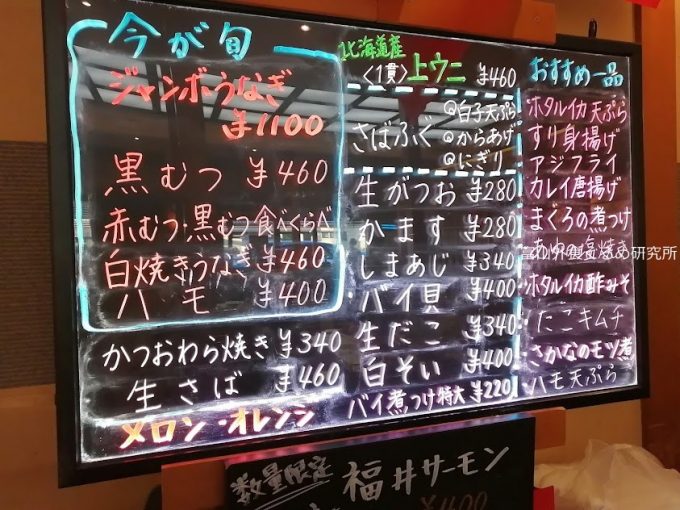 今が旬
ジャンボうなぎ
¥1100
黒むつ ¥460
赤むつ・黒むつ食べくらべ
白焼きうなぎ ¥460
ハモ ¥400
かつおわら焼き ¥340
生さば ¥460
メロン・オレンジ
北海道産
〈1貫〉上ウニ ¥460
さばふぐ
@白子天ぷら
@からあげ
@にぎり
生がつお ¥280
かます ¥280
しまあじ ¥340
バイ貝 ¥400
生だこ ¥340
白そい ¥400
バイ煮つけ特大 ¥220
おすすめ一品
ホタルイカ天ぷら
すり身揚げ
アジフライ
カレイ唐揚げ
まぐろの煮つけ
あゆの塩焼き
ホタルイカ酢みそ
たこキムチ
さかなのモツ煮
ハモ天ぷら
数量限定
福井サーモン